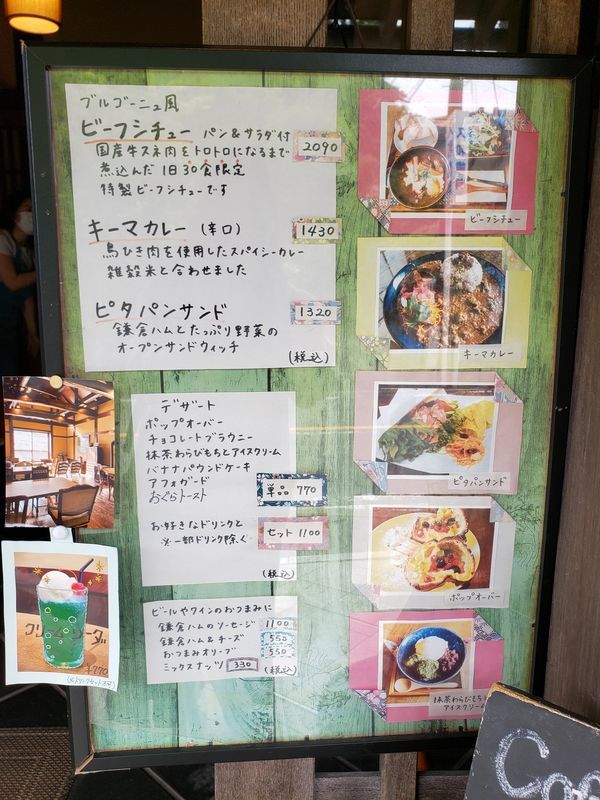 ブルゴーニュ風
ビーフシチュー パン&サラダ付 2090
国産牛スネ肉をトロトロになるまで
煮込んだ1日30食限定
特製ビーフシチューです
キーマカレー (辛口) 1430
鳥ひき肉を使用したスパイシーカレー
雑穀米と合わせました
ピタパンサンド 1320
鎌倉ハムとたっぷり野菜の
オープンサンドウィッチ
(税込)
デザート
ポップオーバー
チョコレートブラウニー
抹茶わらびもちとアイスクリーム
バナナパウンドケーキ
アフォガード
おぐらトースト
単品 770
お好きなドリンクと
※一部ドリンク除く
セット 1100
(税込)
ビールやワインのおつまみに
鎌倉ハムのソーセージ 1100
鎌倉ハム&チーズ 550
おつまみオリーブ 550
ミックスナッツ 330
(税込)
ビーフシチュー
キーマカレー
ピタパンサンド
ポップオーバー
抹茶わらびもちと
アイスクリーム
クリームソーダ
¥770